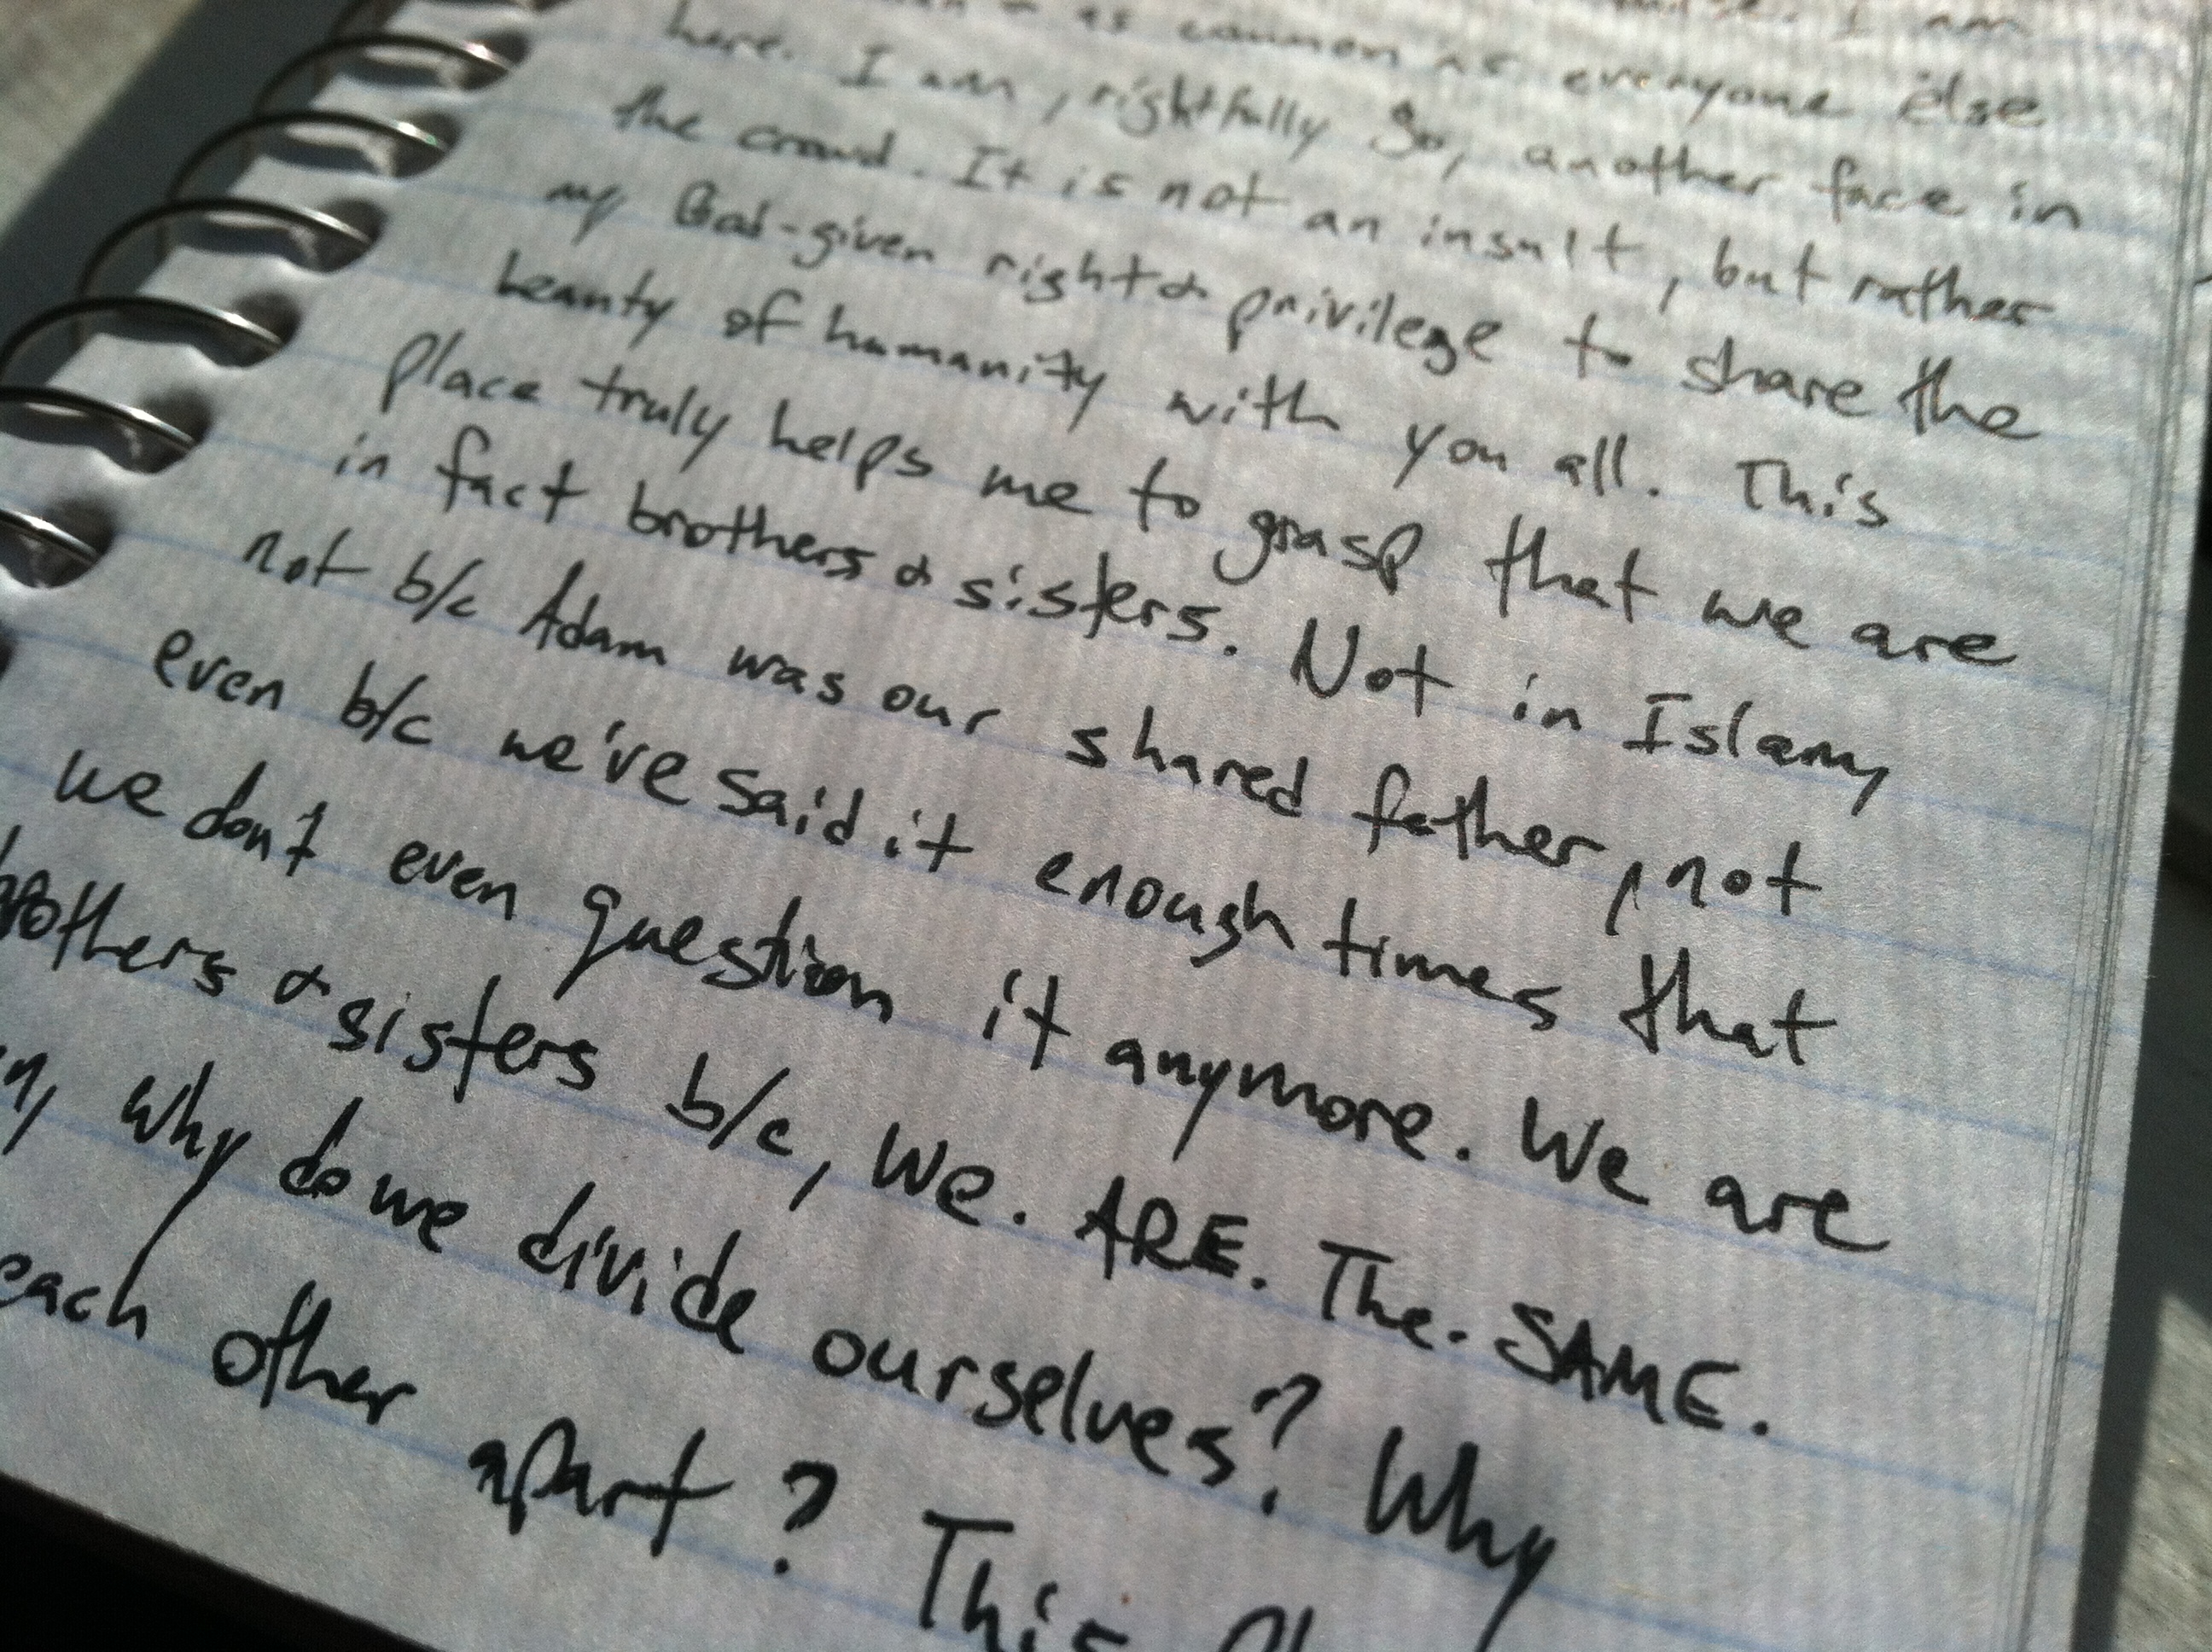 I am
as common as everyone else
here. I am, rightfully so, another face in
the crowd. It is not an insult, but rather
my God-given right & privilege to share the
beauty of humanity with you all. This
place truly helps me to grasp that we are
in fact brothers & sisters. Not in Islam,
not b/c Adam was our shared father, not
even b/c we've said it enough times that
we don't even question it anymore. We are
brothers & sisters b/c, We. ARE. The. SAME.
why do we divide ourselves? Why
each other apart? This